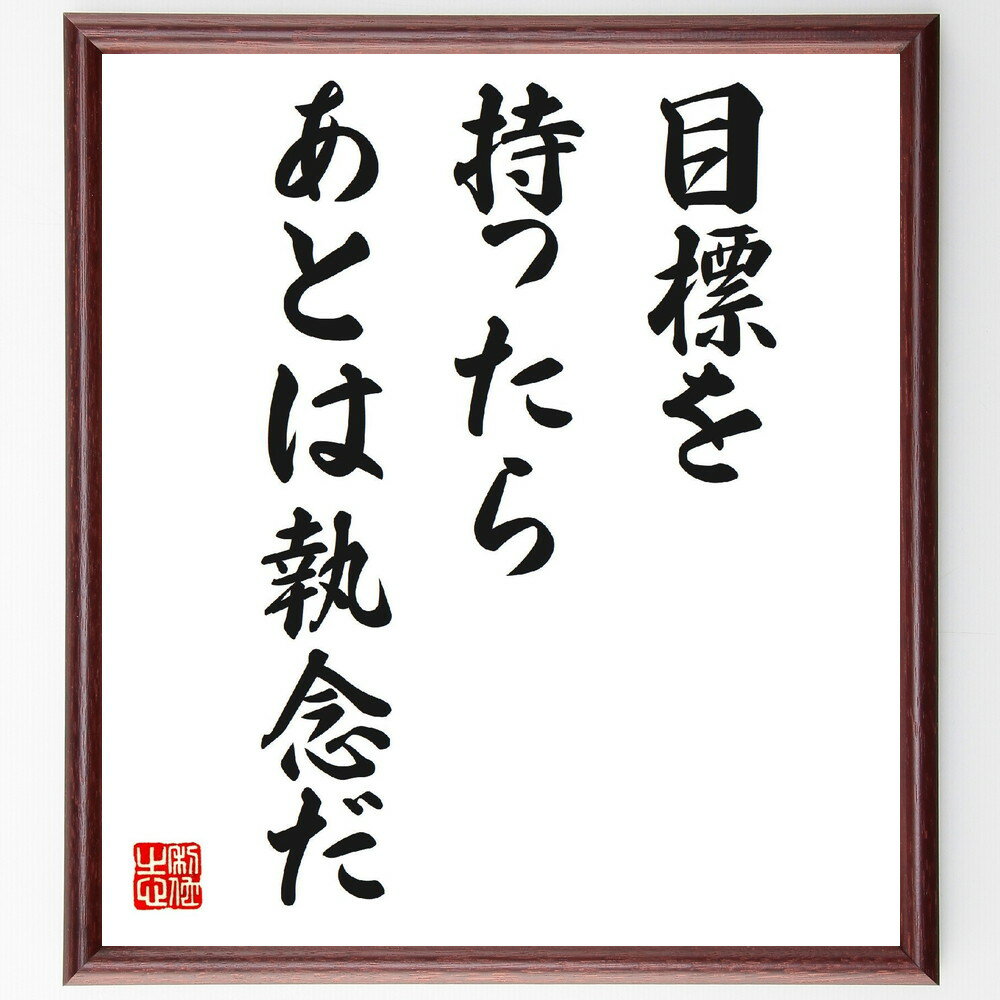 目標を
持ったら
あとは執念だ